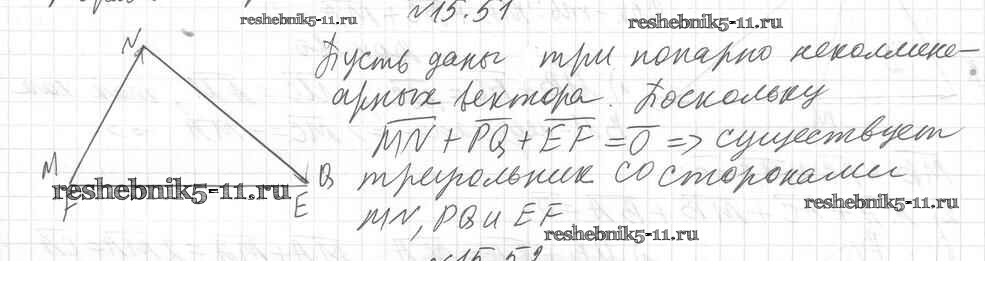 №15.51
reshebnik5-11.ru
reshebnik5-11.ru
N
Пусть даны три попарно неколлине-
арных вектора. Поскольку
MN + PQ + EF = 0 => существует
M
Q треугольник со сторонами
reshebnik5-11.ru
reshebnik5-11.ru
F
E
MN, PQ и EF
reshebnik5-11.ru
№15.52